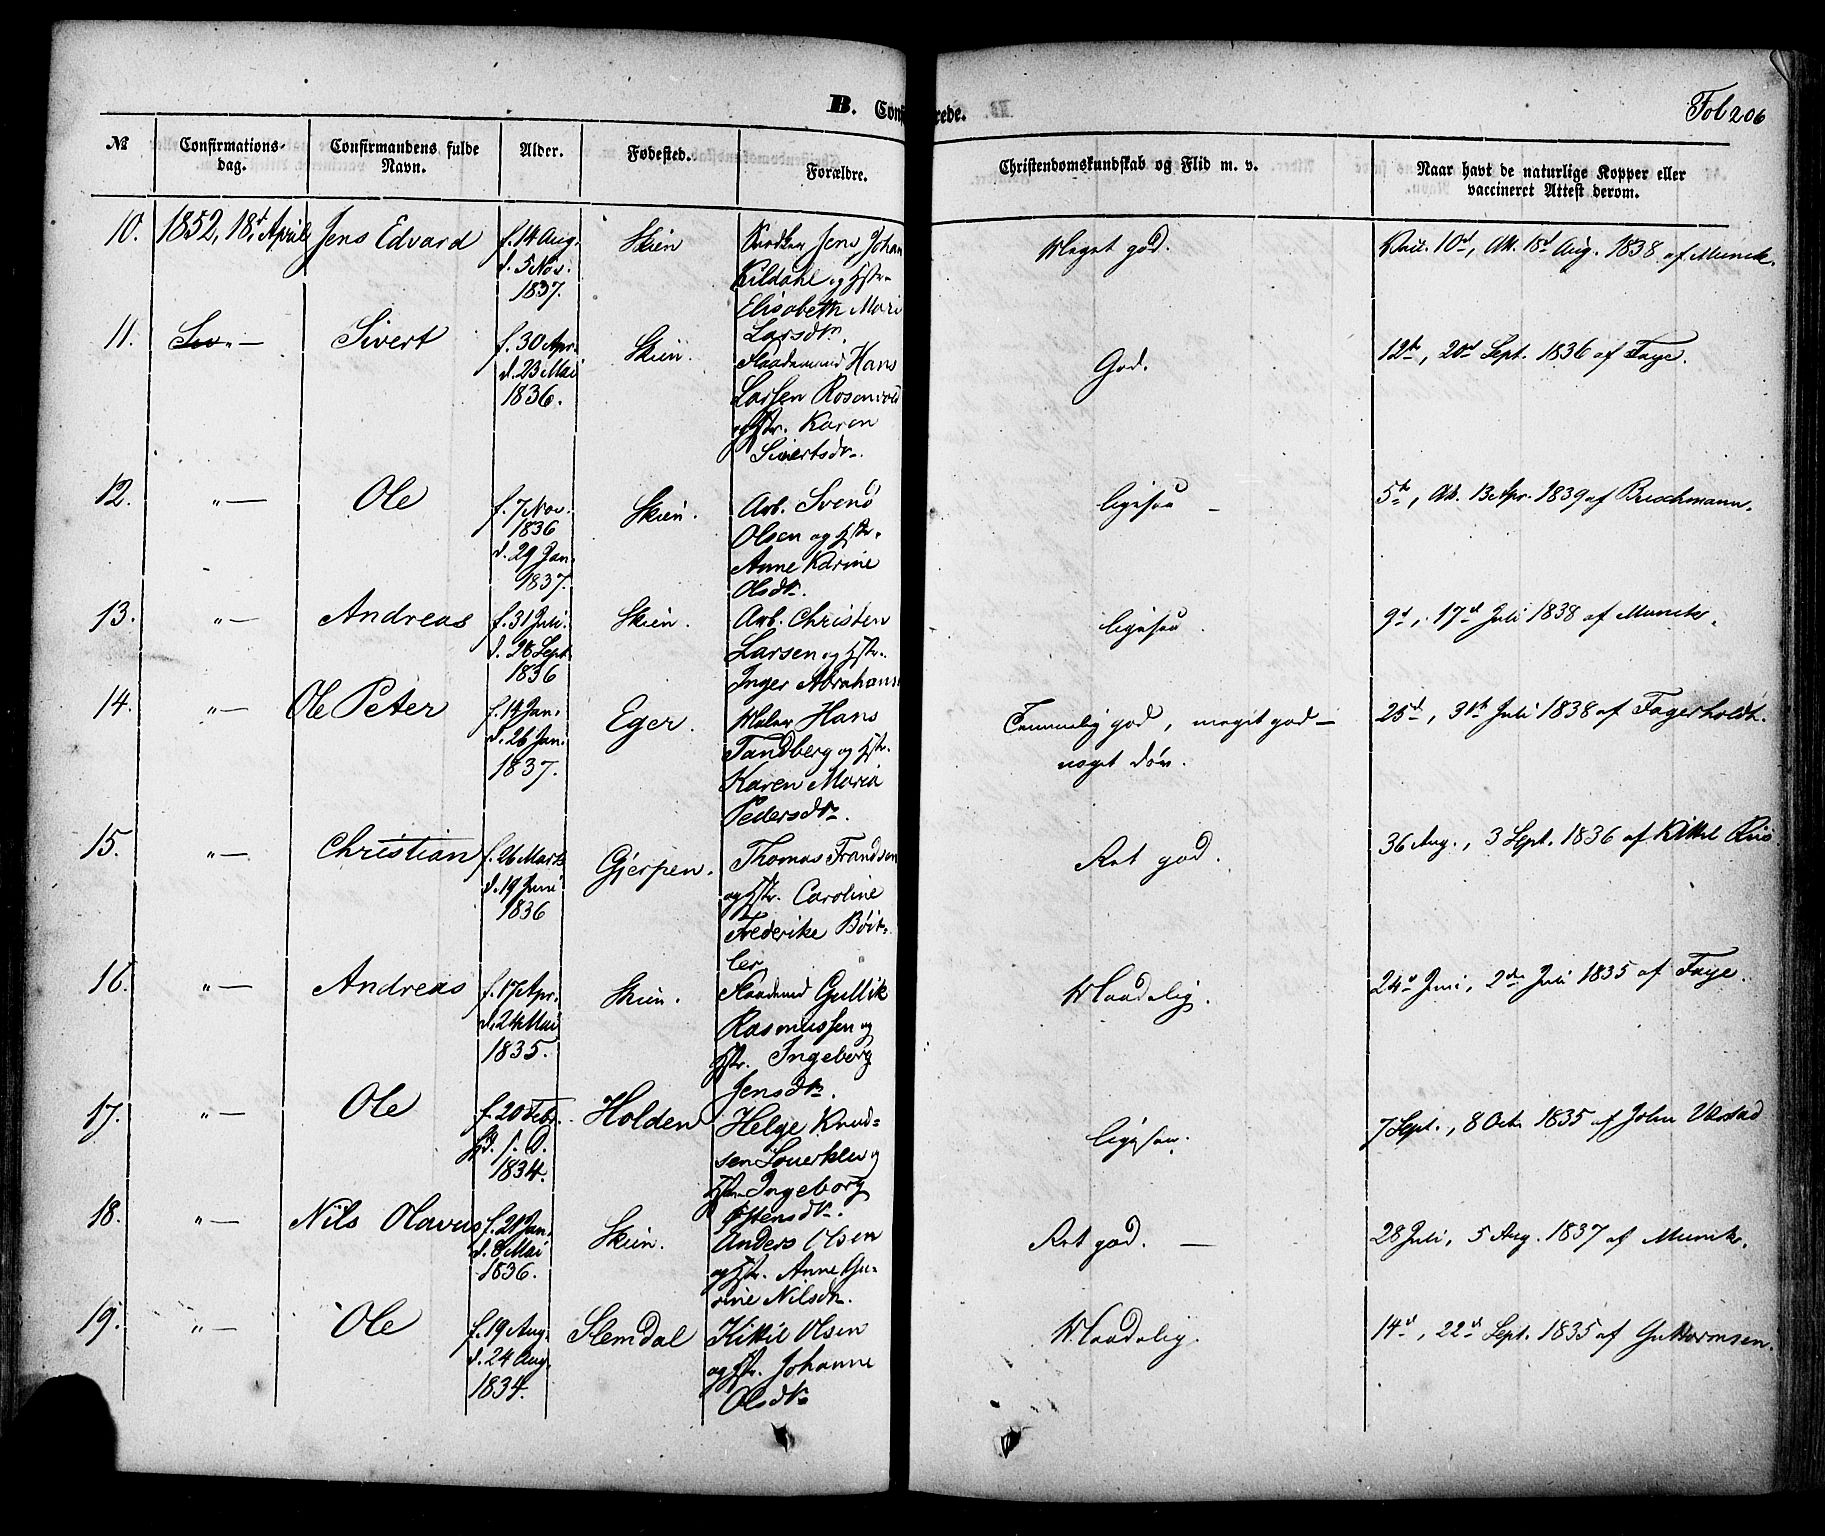 B. Confirmerede.
Fol 206
№
Confirmations-
dag.
Confirmandens fulde
Navn.
Alder.
Fødested.
Forældre.
Christendomskundskab og Flid m. v.
Naar havt de naturlige Kopper eller
vaccineret Attest derom.
10. 1852, 18d. April Jens Edvard
f. 14 Aug.
d. 5 Nov.
1837.
Skien
Jens Johan
Kildahl og Hstr.
Elisabeth Mari
Larsdtr.
Meget god.
10d, Att. 15d Aug. 1838 af Munck.
11. " — Sivert
f. 30 Apr.
d. 23 Mai
1836.
Skien.
Hans
Larsen Rosenvold
og Hstr. Karen
Sivertsdtr.
God.
12te, 20d Sept. 1836 af Faye.
12. " — Ole
f. 7 Nov.
1836
d. 29 Jan.
1837.
Skien.
Arb. Svenø
Olsen og Hstr.
Anne Karine
Olsdtr.
ligesaa —
5te, Att. 13 Apr. 1839 af Bruchmann.
13. " — Andreas
f. 31 Juli.
d. 26 Sept.
1836
Skien.
Arb. Christen
Larsen og Hstr.
Inger Abrahams
ligesaa.
9d, 17d Juli 1838 af Munck.
14. " — Ole Peter
f. 14 Jan.
d. 26 Jan.
1837.
Eger.
Maler Hans
Tandberg og Hstr.
Karen Maria
Pedersdtr.
Temmelig god, meget god —
noget døv.
25d, 31te Juli 1838 af Fagerholdt.
15. " — Christian
f. 26 Marts
d. 19 Juni
1836
Gjerpen.
Thomas Frandsen
og Hstr. Caroline
Frederike Bøit-
ler
Ret god.
36 Aug., 3 Sept. 1836 af Kittel Riis
16. " — Andreas
f. 17 Apr.
d. 24 Mai
1835.
Skien.
Gullik
Rasmussen og
Hstr. Ingeborg
Jensdtr.
Maadelig.
24d Juni, 2den Juli 1835 af Faye.
17. " — Ole
f. 20 Febr.
1834.
Holden
Helge Knud-
sen og
Hstr. Ingeborg
Østensdtr.
ligesaa.
7 Sept., 8 Octr. 1835 af John
18. " — Nils Olavus
f. 21 Jan.
d. 8 Mai
1836.
Skien.
Anders Olsen
og Hstr. Anne Gu-
rine Nilsdtr.
Ret god. —
28 Juli, 5 Aug. 1837 af Munck.
19. " — Ole
f. 19 Aug.
d. 24 Aug.
1834.
Slemdal
Kittil Olsen
og Hstr. Johanne
Olsdtr.
Maadelig.
14d, 22d Sept. 1835 af Guttormsen.